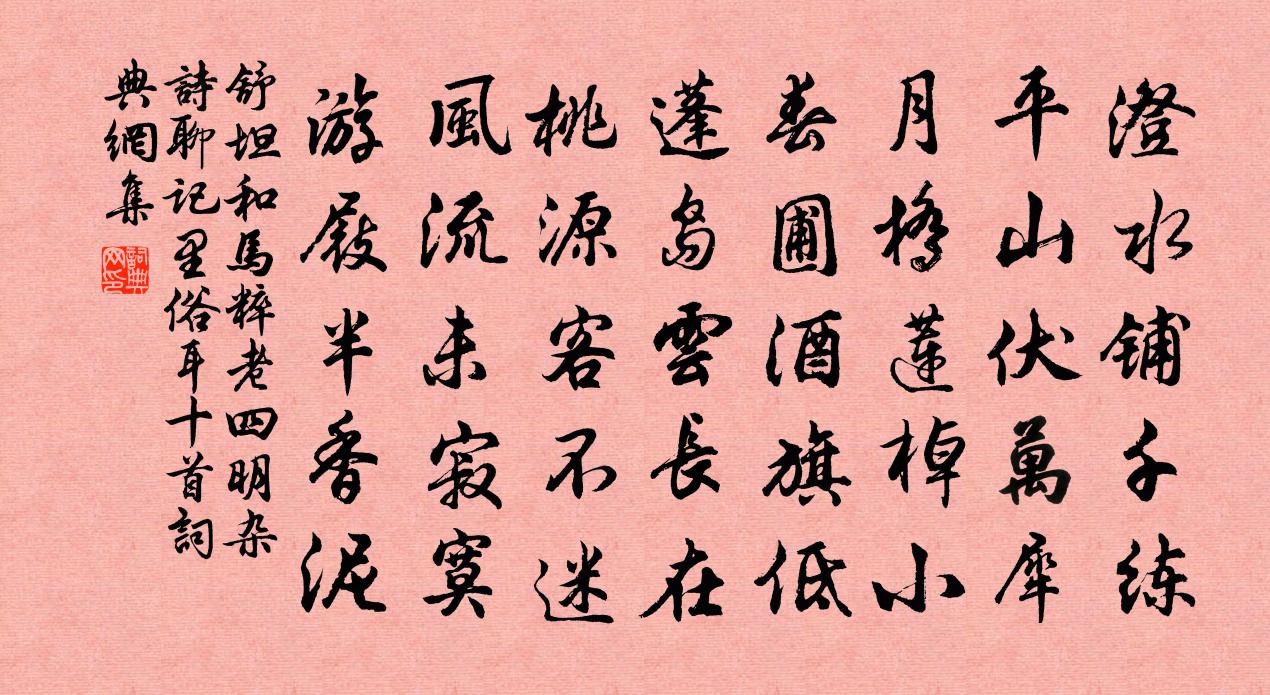 澄水铺千练
平山伏萬犀
月橋蓮棹小
春圃酒旗低
蓬島雲長在
桃源客不迷
風流未寂寞
游屐半香泥
舒坦和馬粹老四明杂
詩聊記里俗耳十首詞
典網集
詞典網印